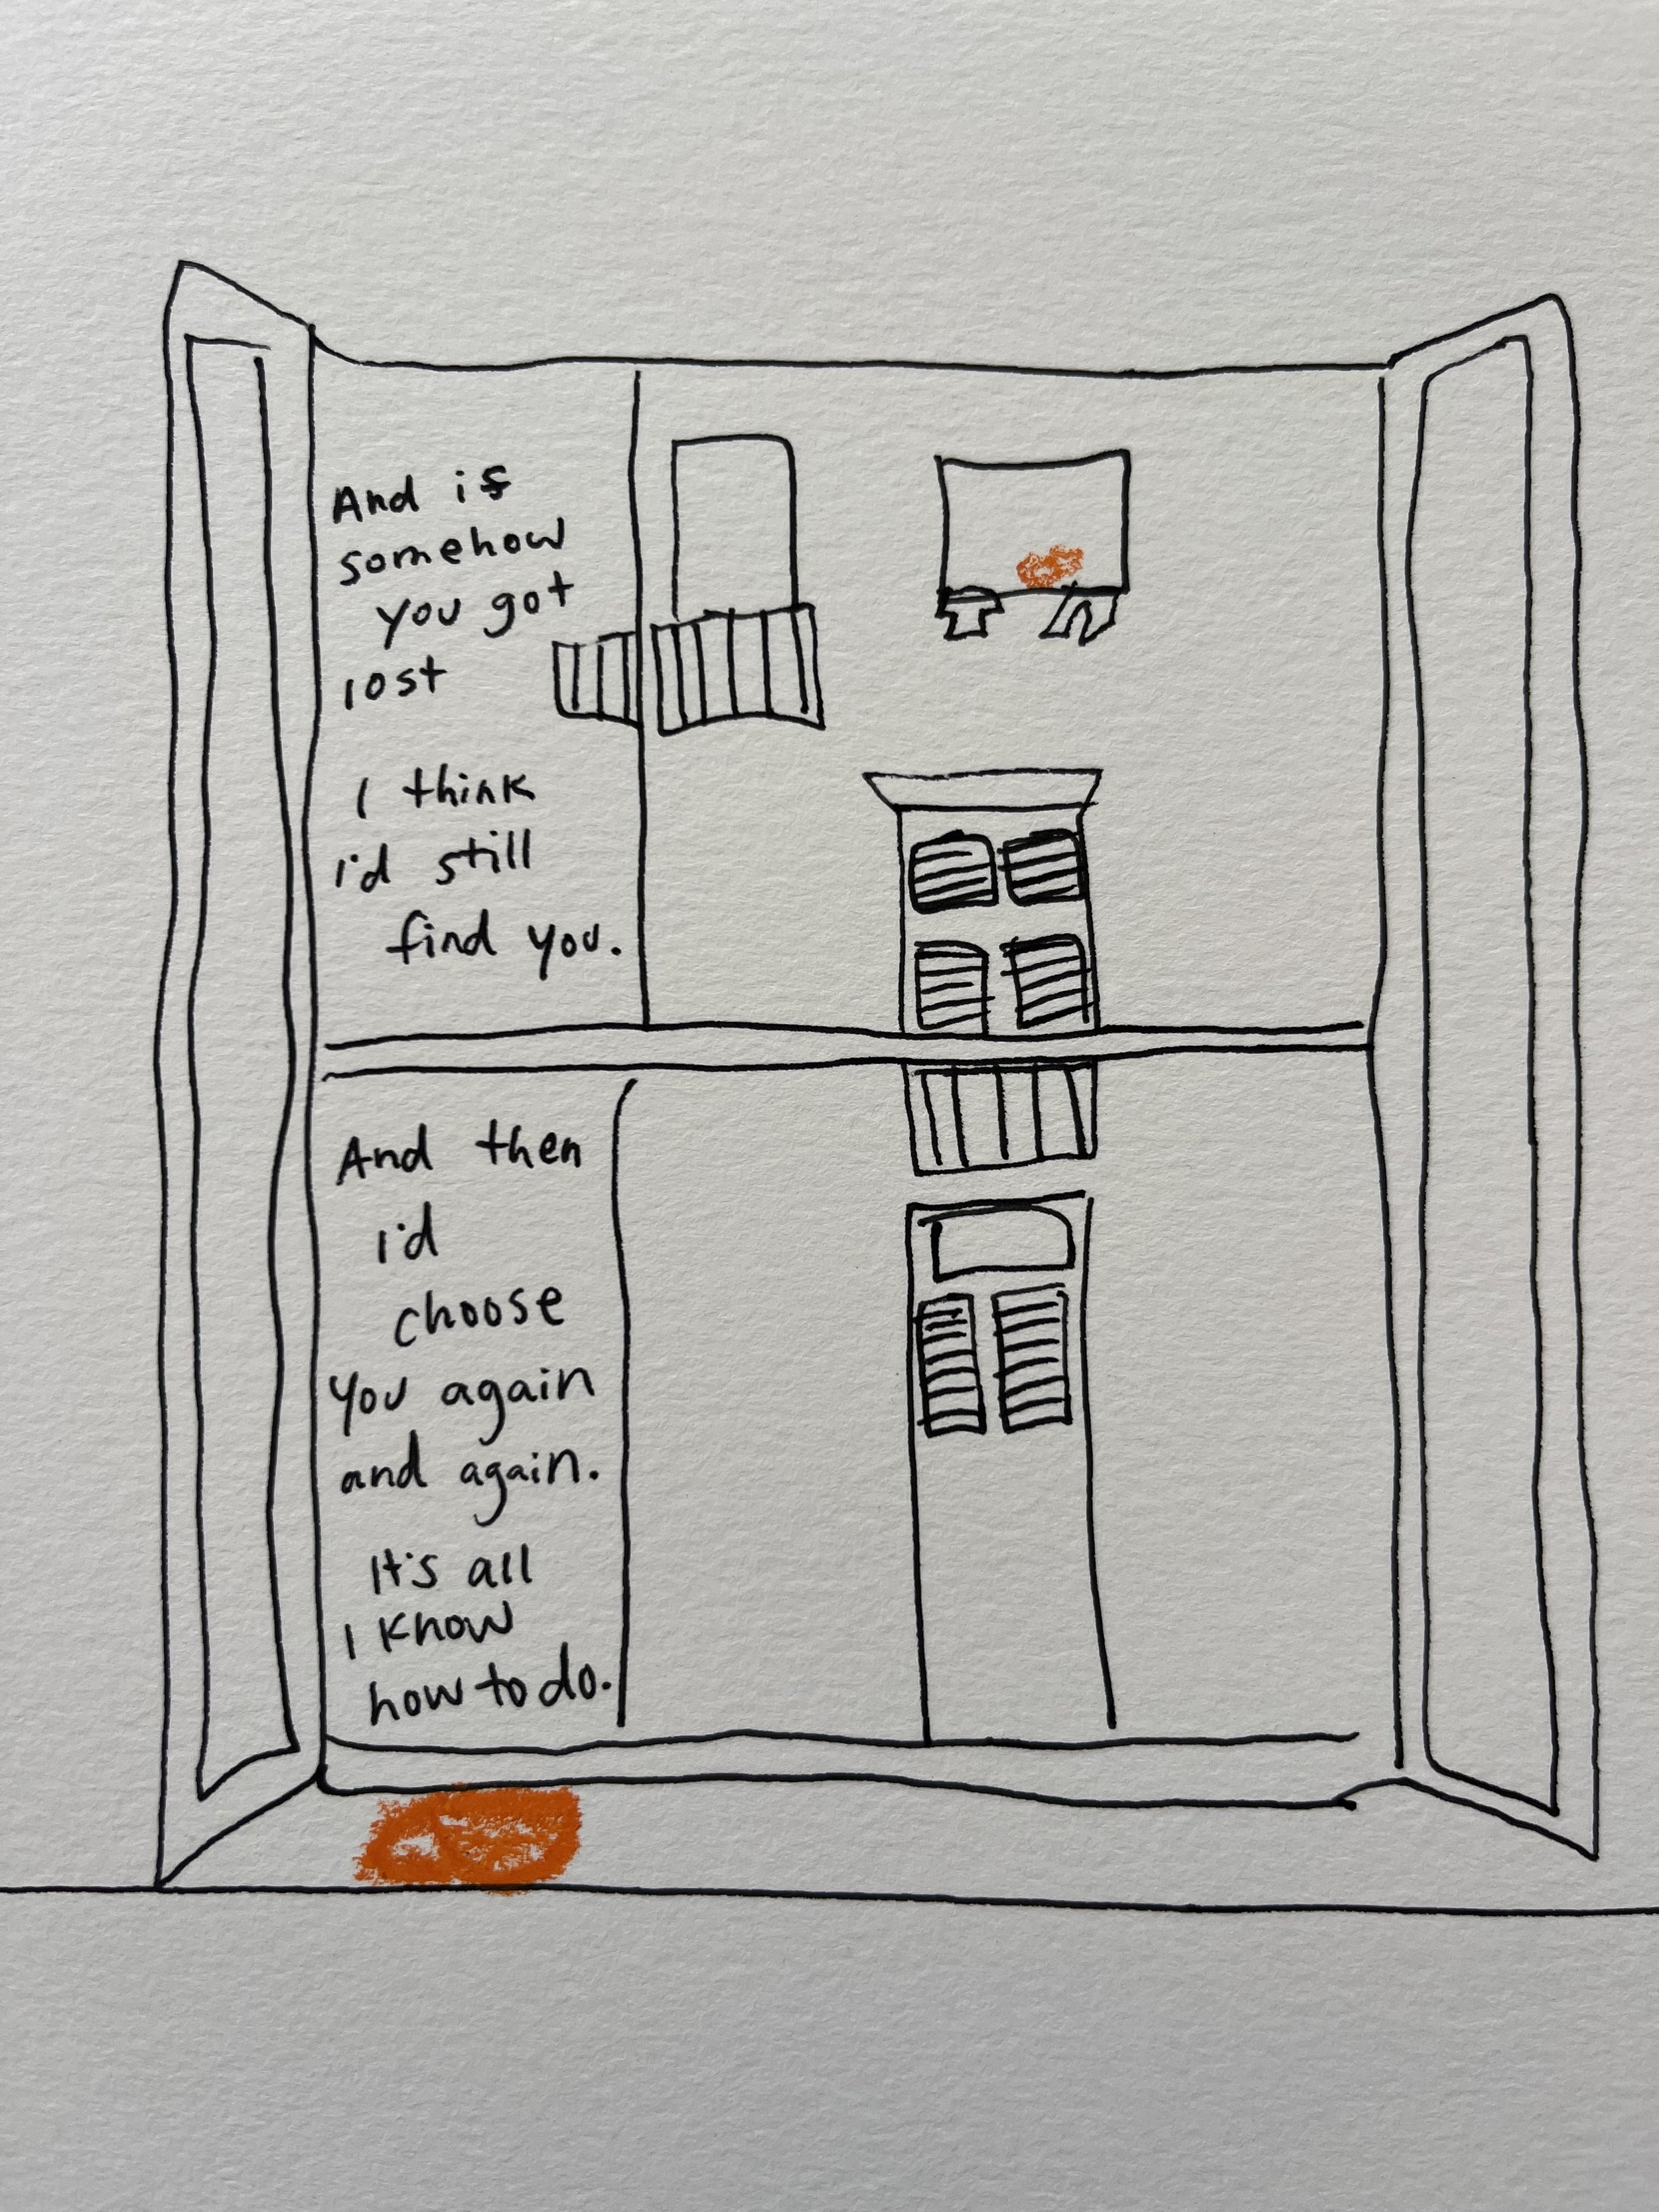 And if
somehow
you got
lost
I think
I'd still
find you.
And then
I'd
choose
you again
and again.
It's all
I know
how to do.